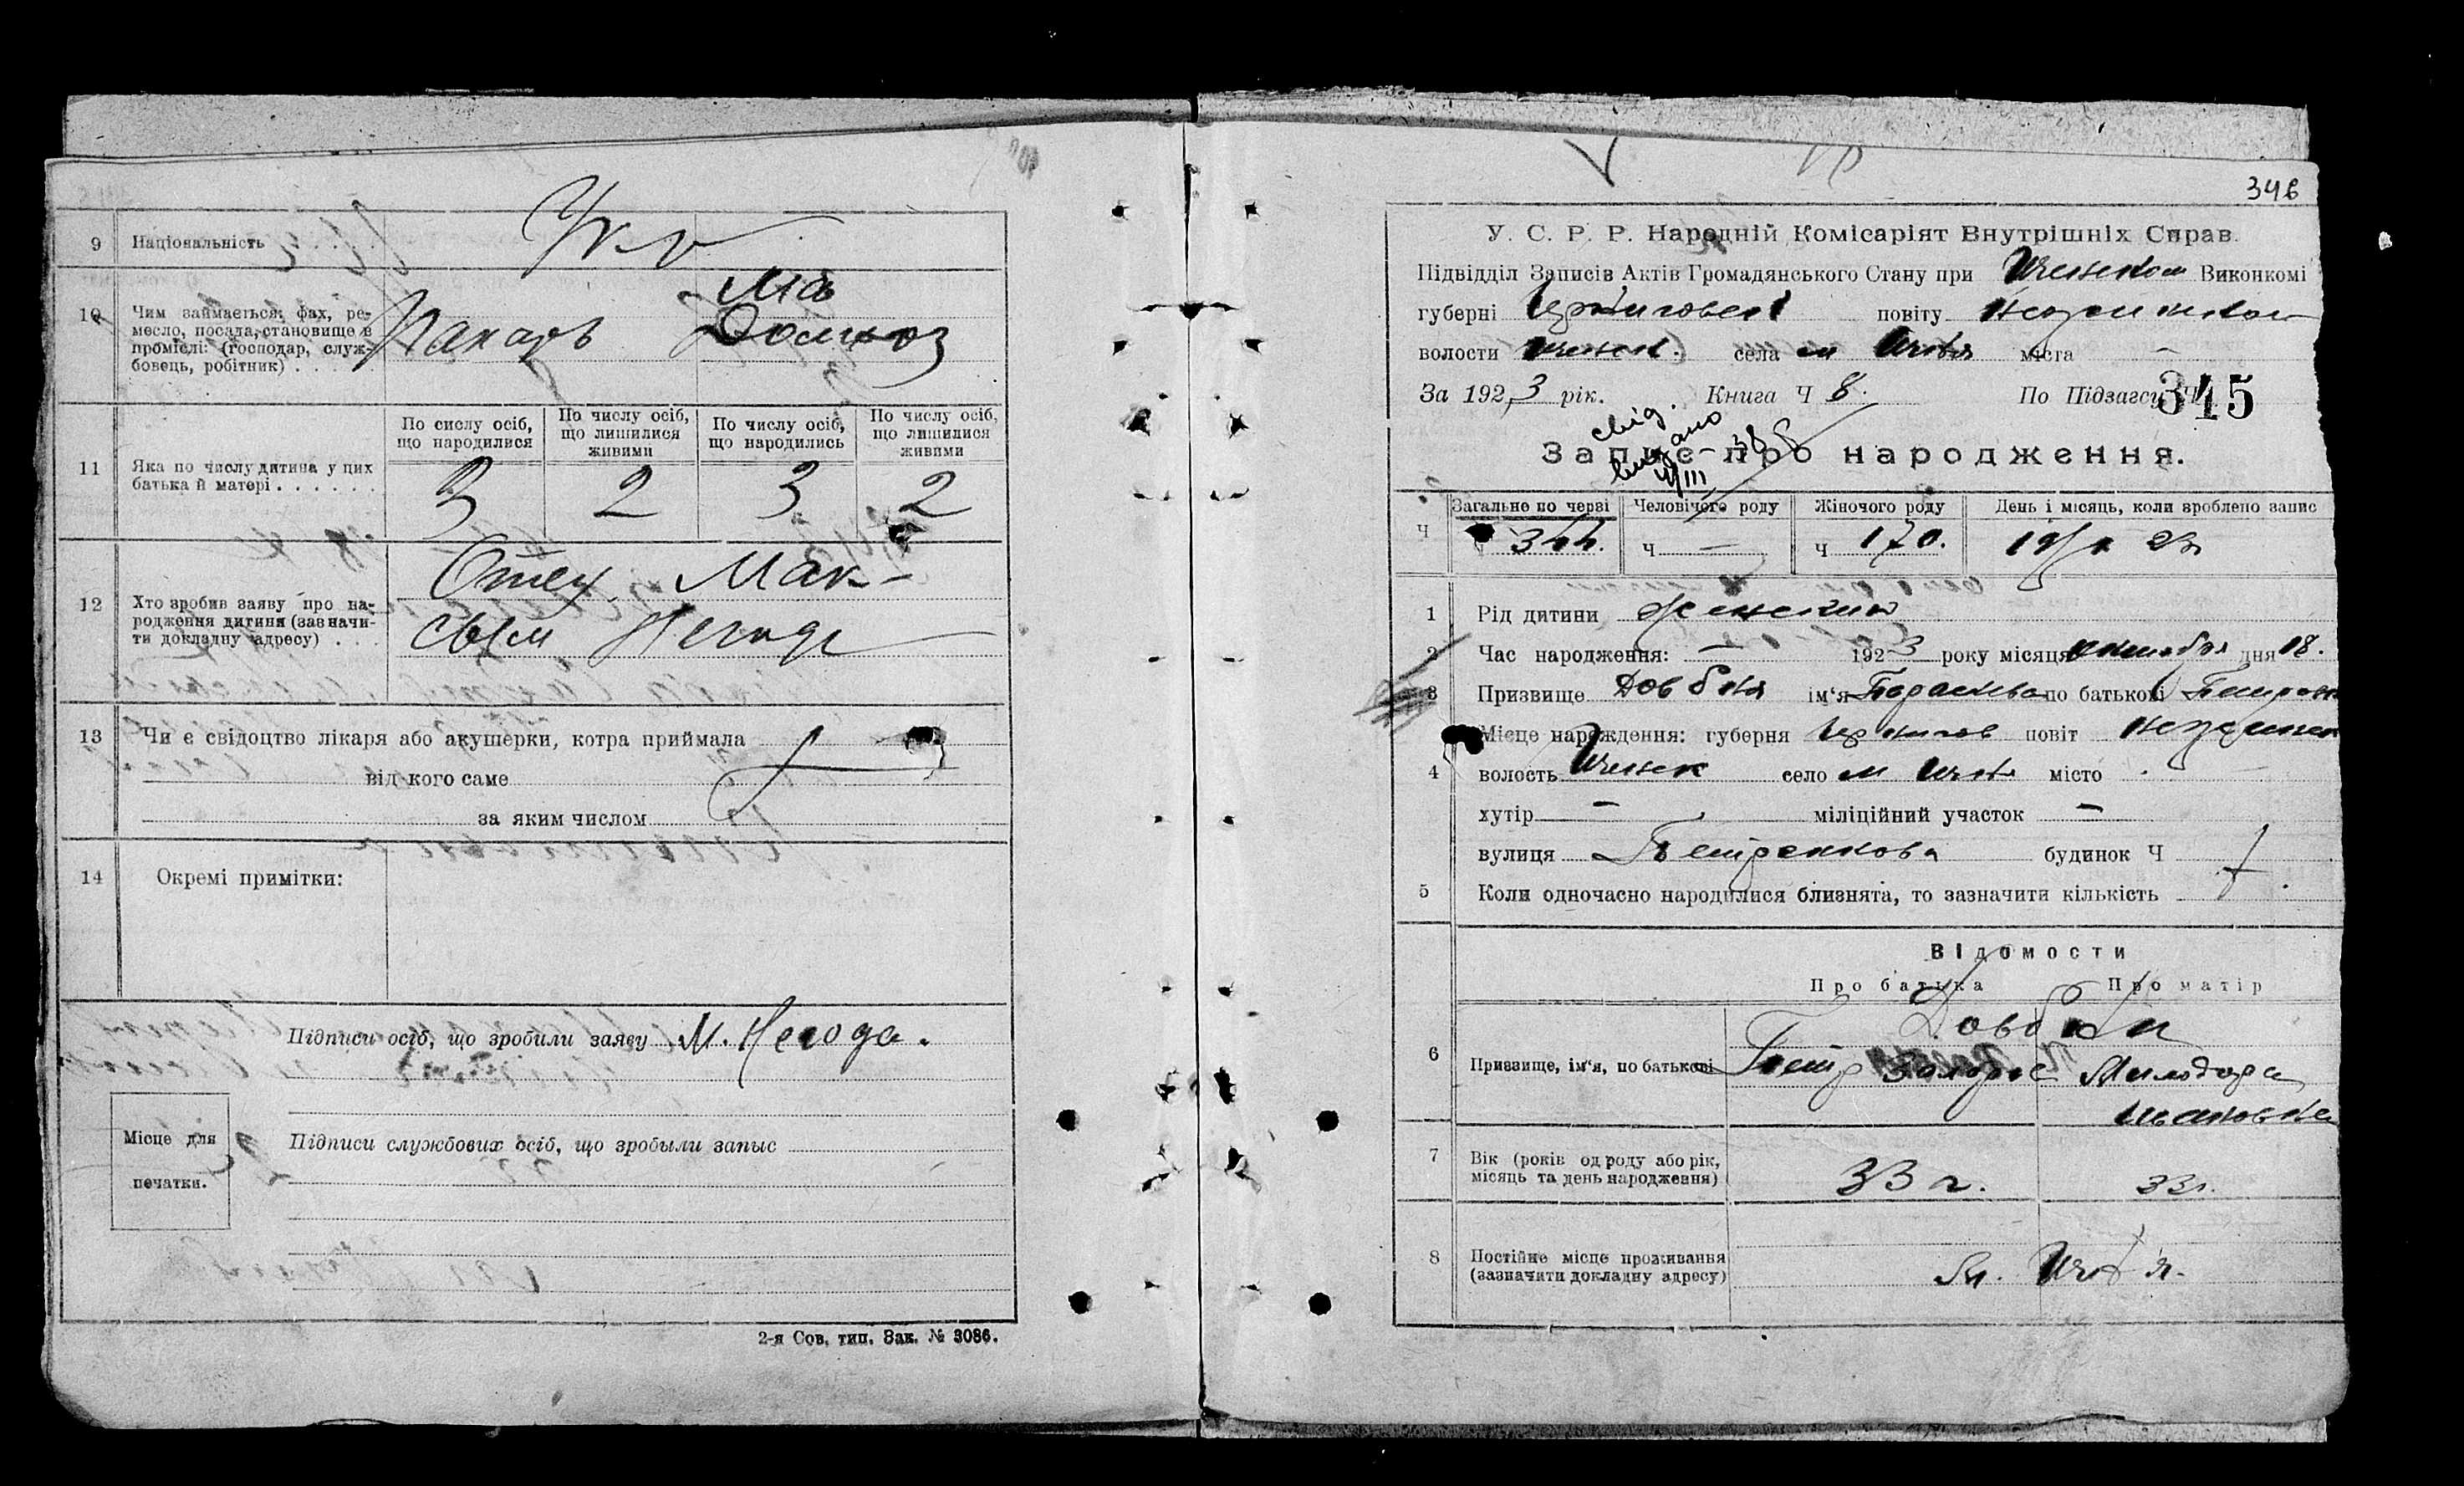 9 Національність . . . . Укр
10 Чим займається: фах, ре-
месло, посада, становище в
промислі: (господар, служ-
бовець, робітник) . . . . .
11 Яка по числу дитина у цих
батька й матері . . . . . .
По сислу осіб, що народилися
По числу осіб, що лишилися живими
По числу осіб, що народились
По числу осіб, що лишилися живими
3 2 3 2
12 Хто зробив заяву про на-
родження дитини (зазначи-
ти докладну адресу) . . .
Отец Мак-
сым Негода
13 Чи є свідоцтво лікаря або акушерки, котра приймала
від кого саме
за яким числом
14 Окремі примітки:
Підписи осіб, що зробили заяву М. Негода.
Місце для
печатки.
Підписи службових осіб, що зробыли запыс
2-я Сов. тип. Зак. № 3086.
346
У. С. Р. Р. Народній Комісаріят Внутрішніх Справ.
Підвідділ Записів Актів Громадянського Стану при Ичнском Виконкомі
губерні повіту
волости Ичнск. села м Ичня міста –
За 1923 рік. Книга Ч 8. По Підзагсу Ч 345
свід.
видано
Запис про народження.
Загальне по черзі Человічого роду Жіночого роду День і місяць, коли зроблено запис
Ч Ч 344. Ч – Ч 170.
1 Рід дитини женский
2 Час народження: – 1923 року місяця октября дня 18.
3 Призвище Довбня ім'я по батькові
4 Місце народження: губерня Чернигов повіт
волость Ичнск село м Ичня місто
хутір – міліційний участок –
вулиця Петренкова будинок Ч
5 Коли одночасно народилися близнята, то зазначити кількість
Відомости
Про батька Про матір
6 Призвище, ім'я, по батькові
Довбни
Петр
Ивановна
7 Вік (років од роду або рік,
місяць та день народження)
33 г. 33 г.
8 Постійне місце проживання
(зазначити докладну адресу)
м. Ичня.